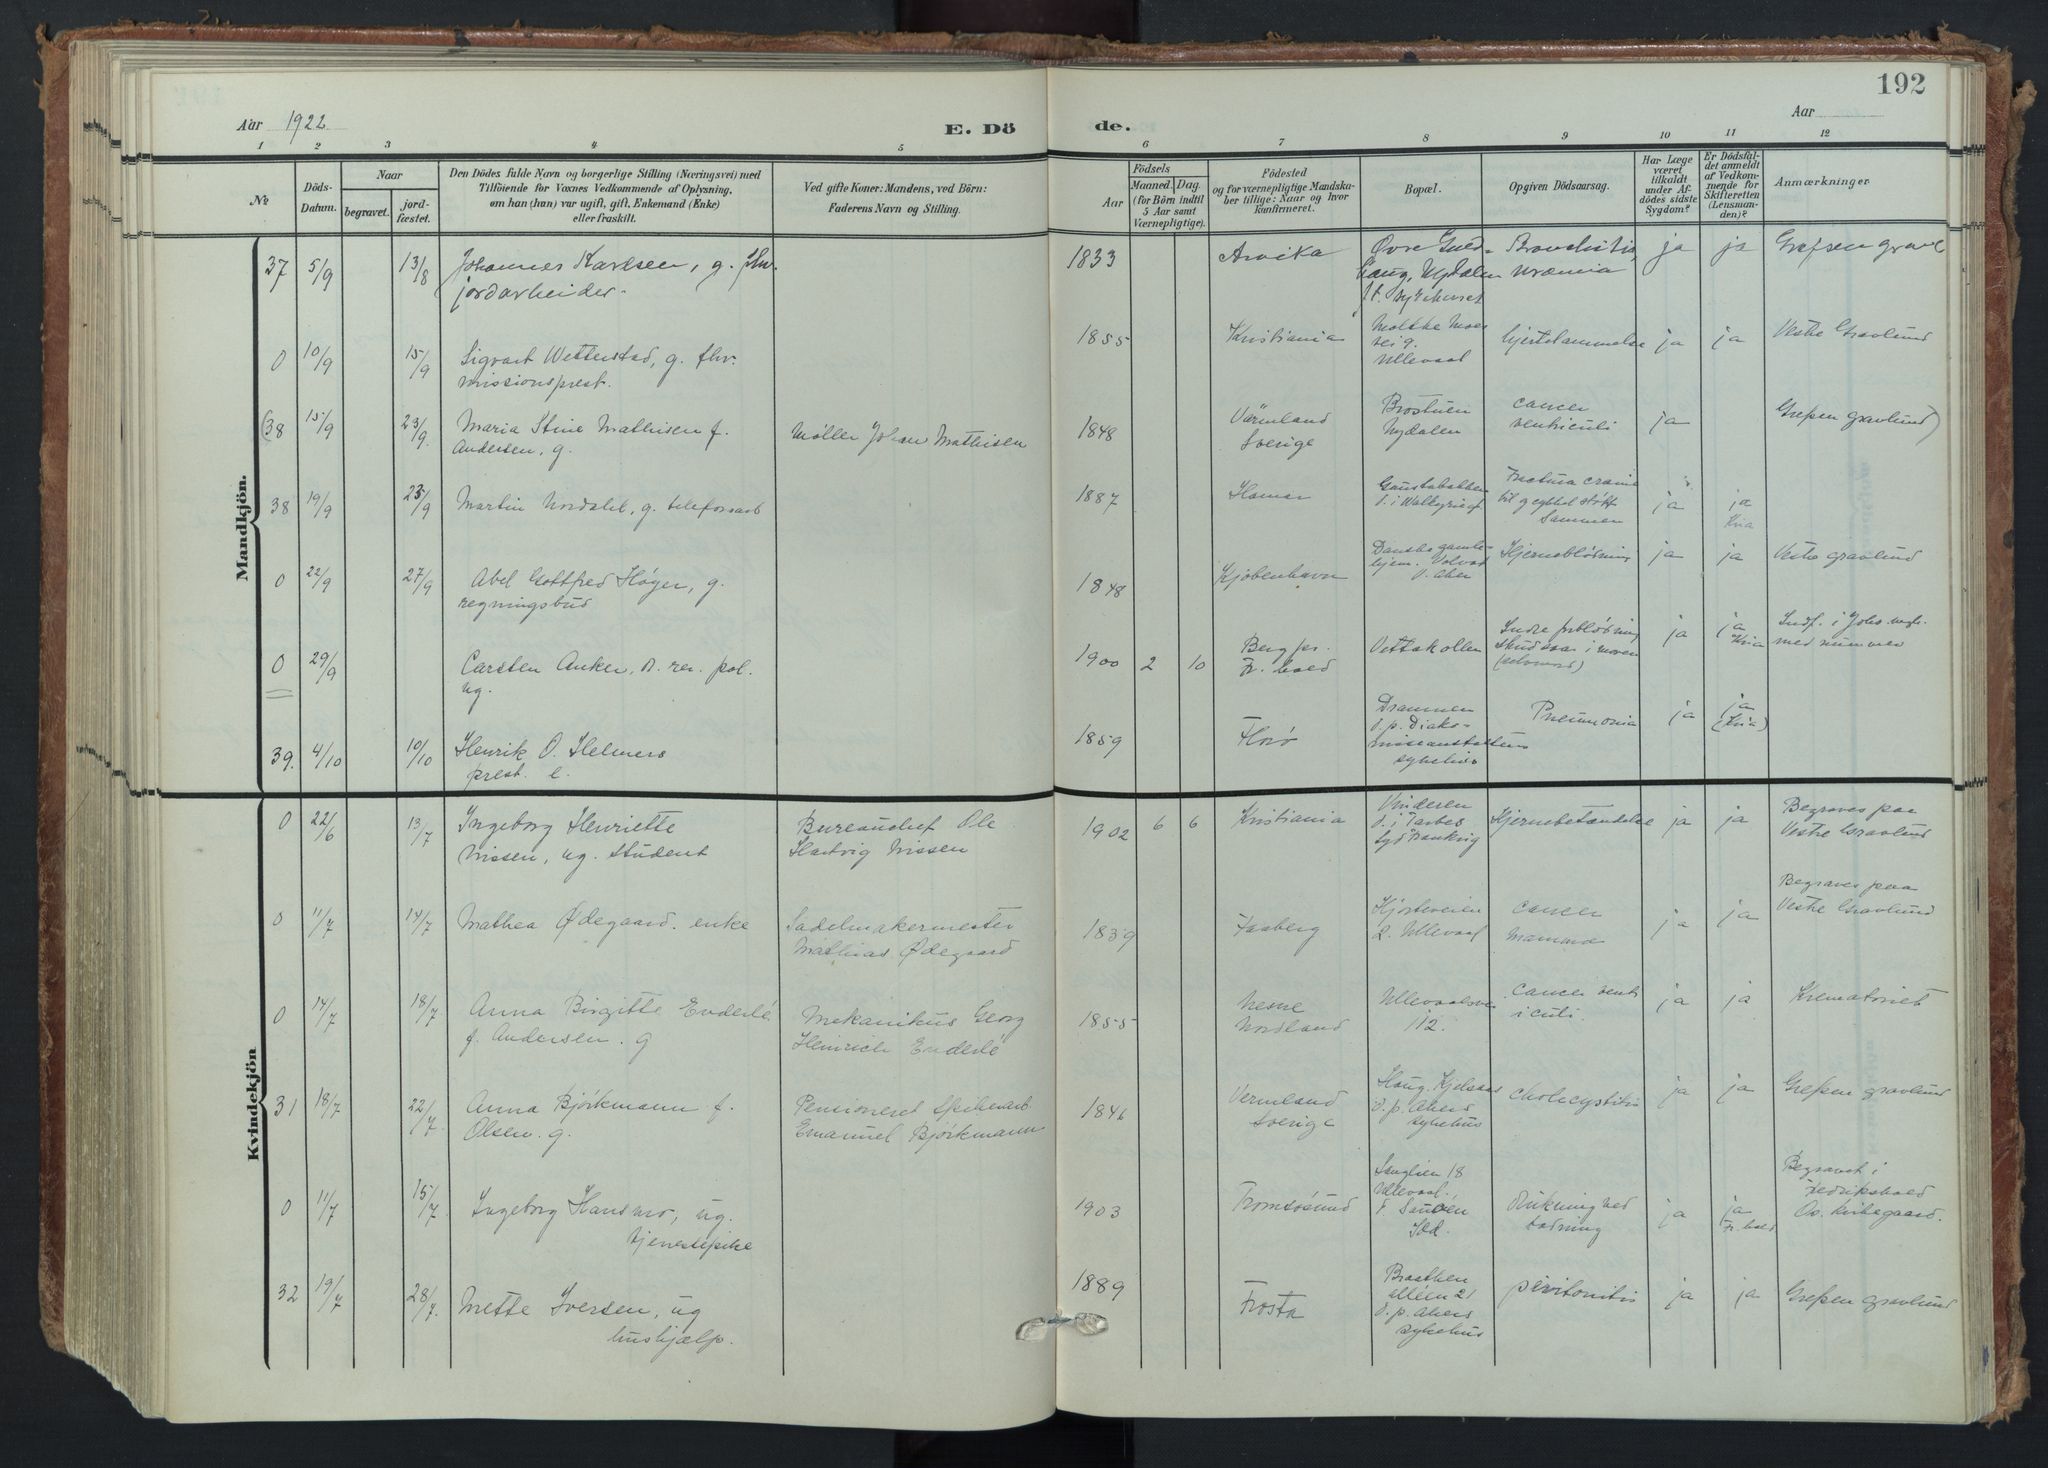 192
Aar 1922
E. Dö
de.
Aar
1 2 3 4 5 6 7 8 9 10 11 12
No
Döds-Datum.
Naar
begravet.
jord-fæstet.
Den Dödes fulde Navn og borgerlige Stilling (Næringsvei) med
Tilföiende for Voxnes Vedkommende af Oplysning,
om han (hun) var ugift, gift, Enkemand (Enke)
eller fraskilt.
Ved gifte Koner: Mandens, ved Börn:
Faderens Navn og Stilling.
Födsels
Aar
Maaned. Dag.
(for Börn indtil
5 Aar samt
Værnepligtige).
Födested
og for værnepligtige Mandska-
ber tillige: Naar og hvor
konfirmeret.
Bopæl.
Opgiven Dödsaarsag.
Har Læge
været
tilkaldt
under Af-
dödes sidste
Sygdom?
Er Dödsfal-
det anmeldt
af Vedkom-
mende for
Skifteretten
(Lensman-
den)?
Anmærkninger
Mandkjön.
37 5/9 13/8 Johannes Karlsen, g. fhv. 1833 Arvika Øvre Guld- Bronchitis, ja ja Grefsen gravl
jordarbeider. haug, Nydalen uræmia
sykehuset
0 10/9 15/9 Sigvart Wetterstad, g. fhv. 1855 Kristiania Moltke Moes hjertelammelse ja ja Vestre Gravlund
missionsprest. vei 9
Ullevaal
(38 15/9 23/9 Maria Stine Mathisen f. Møller Johan Mathisen 1848 Värmland Brostuen cancer ja Grefsen gravlund)
Andersen, g. Sverige Nydalen ventriculi
38 19/9 25/9 Martin Nordahl, g. telefonarb 1887 Hamar Gaustabakken Fractura cranie ja ja
sammen Kria
0 22/9 27/9 Abel Gottfred Høyer, g. 1848 Kjøbenhavn Danske gamle- Hjerneblødning ja ja Vestre gravlund
regningsbud hjem. Volvat
V. Aker
0 29/9 Carsten Anker, d. rer. pol. 1900 2 10 Berg pr. Vettakollen Indre forblødning ja ja Kria Indf. i
ug. Fr. hald skudsaar i maven med nummer
(selvmord)
39. 4/10 10/10 Henrik O. Helmers 1859 Florø Drammen Pneumonia ja ja (Kria)
prest. e. d. p. Diako-
nisseanstaltens
sykehus
Kvindekjön
0 22/6 13/7 Ingeborg Henriette Bureauchef Ole 1902 6 6 Kristiania Vinderen Hjernebetændelse ja ja Begraves paa
Nissen, ug. student Hartvig Nissen d. i Tarbes Vestre Gravlund
Sydfrankrig
0 11/7 14/7 Mathea Ødegaard. enke Sadelmakermester 1839 Faaberg Hjorteveien cancer ja ja Begraves paa
Mathias Ødegaard 2. Ullevaal mamma Vestre Gravlund
0 14/7 18/7 Anna Birgitte Enderlé Mekanikus Georg 1855 Nesne Ullevaalsvei cancer ventr ja ja Krematoriet
f. Andersen. g Heinrich Enderlé Nordland 112. iculi.
31 18/7 22/7 Anna Bjørkmann f. Pensioneret spikerarb. 1846 Vermland Haug, Kjelsaas cholecystitis ja ja Grefsen gravlund
Olsen. g. Emanuel Bjørkmann Sverige d. p. Akers
sykehus
0 11/7 15/7 Ingeborg Hansmo, ug. 1903 Tromsøsund 18 Drukning ved ja ja Begravet i
tjenestepike Ullevaal. badning Fr. hald Fredrikshald
Kirkegaard.
32 19/7 28/7 Mette Iversen, ug 1889 Frosta Braathen peritonitis ja ja Grefsen gravlund
hushjælp. alleen 21
d. p. Akers
sykehus